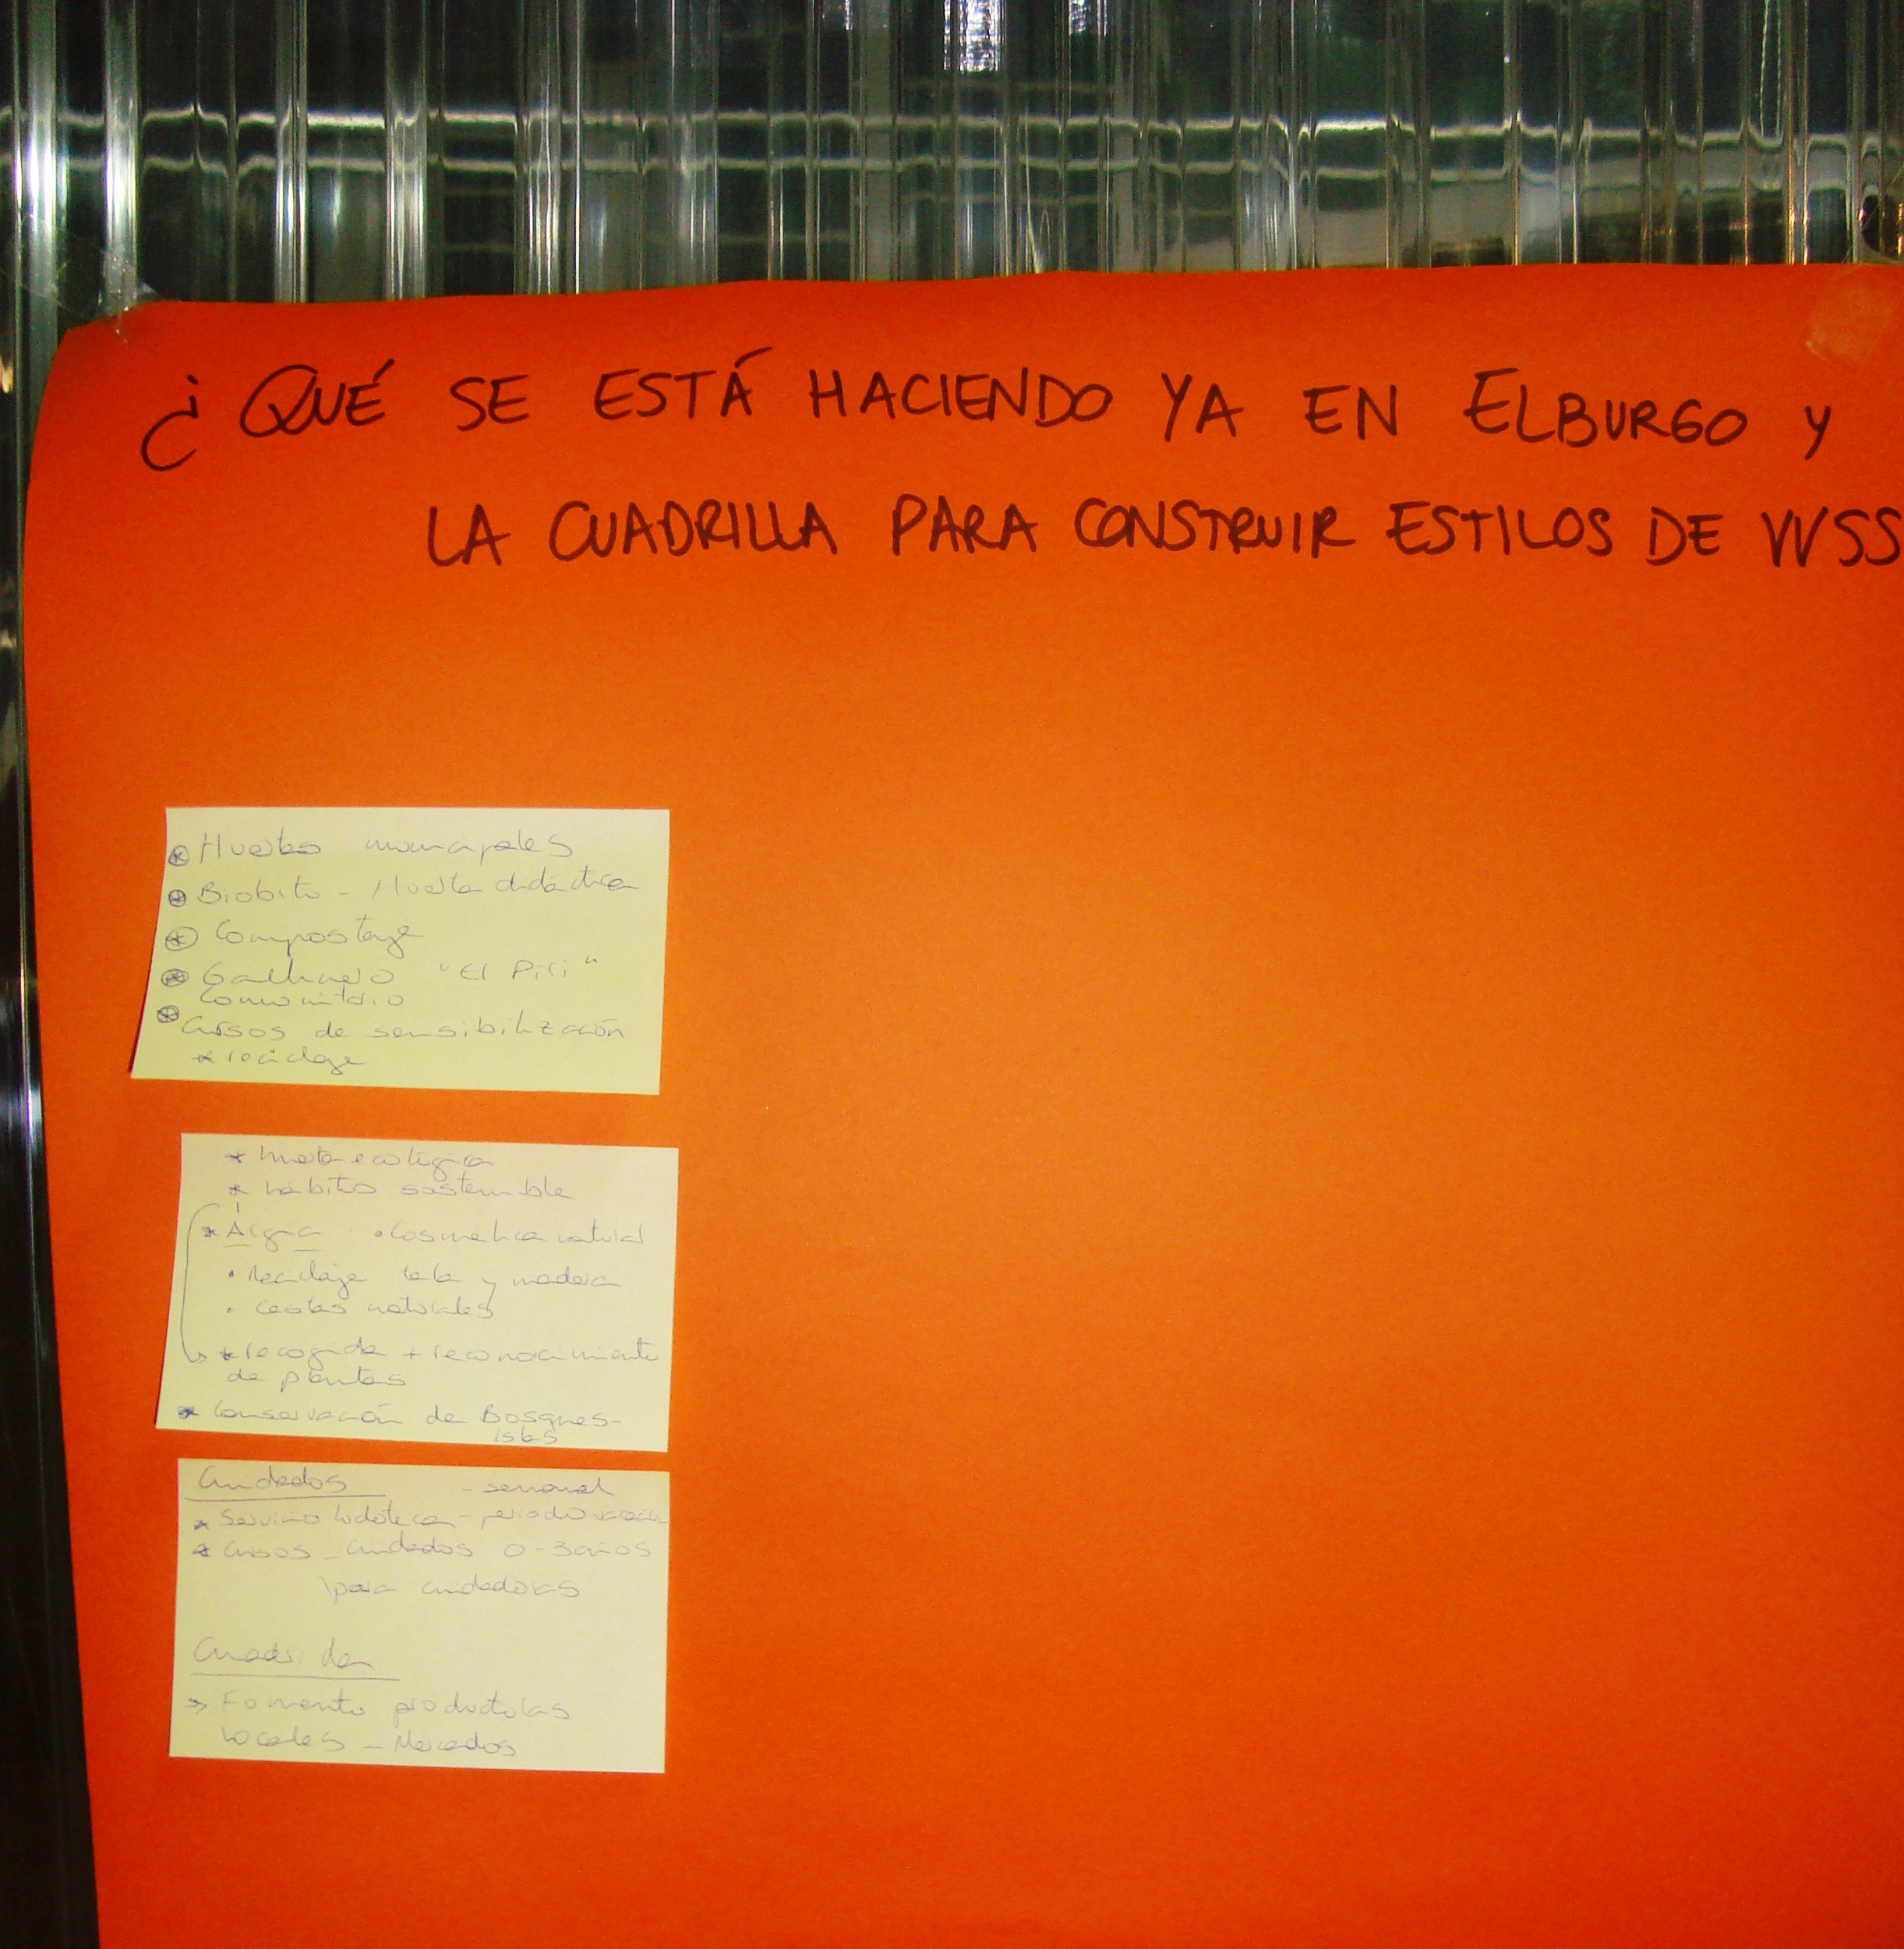 ¿QUÉ SE ESTÁ HACIENDO YA EN ELBURGO Y
LA CUADRILLA PARA CONSTRUIR ESTILOS DE VVSS
Huertas municipales
Biobito - Huerta didáctica
Compostaje
Gallinero "El Piri"
Comunitario
Cursos de sensibilización
* reciclaje
* huerta ecológica
* hábitos sostenible
* • Cosmética natural
• Reciclaje tela y madera
• cestas naturales
* recogida + reconocimiento
de plantas
* Conservación de Bosques-
Cuidados - semanal
* Servicio ludoteca - periodo
* Cursos - Cuidados 0-3 años
\para cuidadoras
Cuadrilla
→ Fomento productoras
locales - Mercados